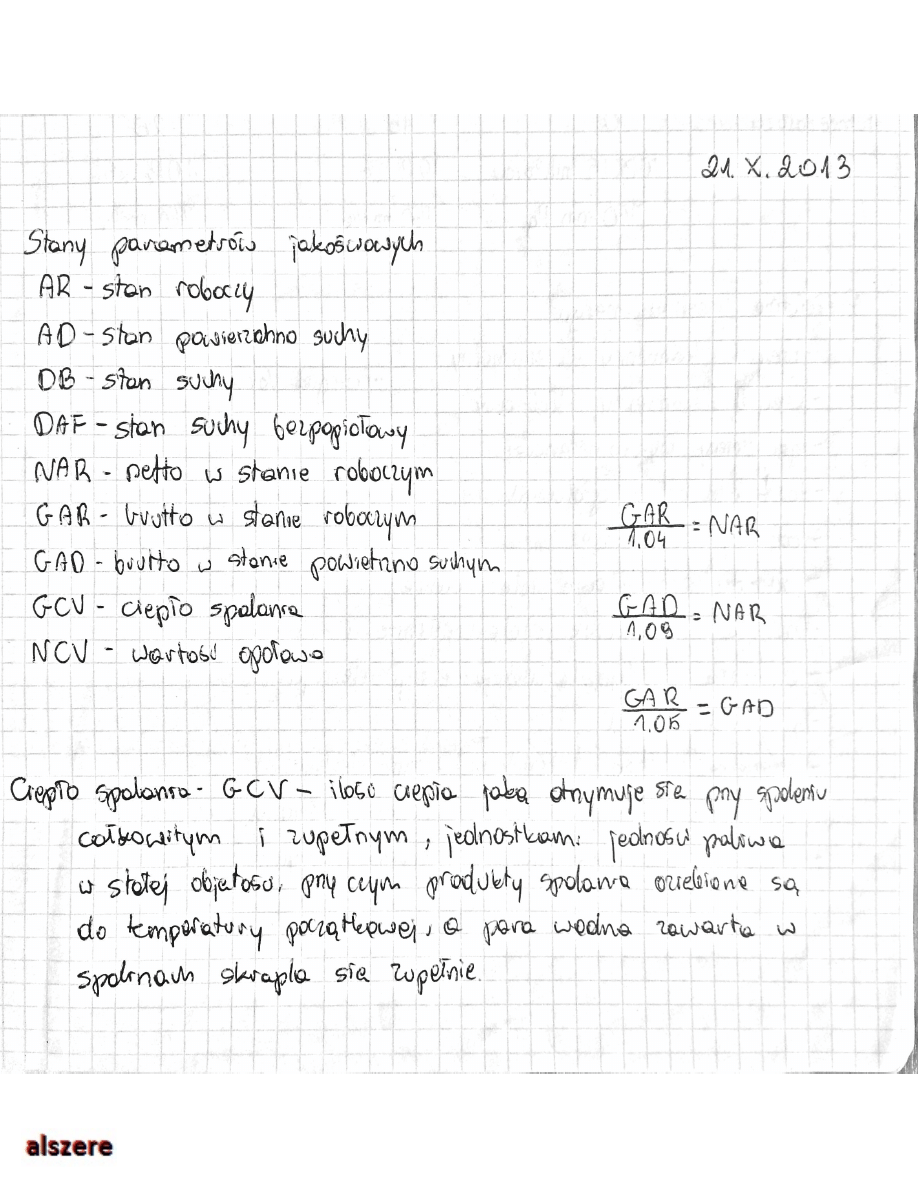 21. X. 2013
Stany parametrów jakościowych
AR - stan roboczy
AD - stan powierzchno suchy
DB - stan suchy
DAF - stan suchy bezpopiołowy
NAR - netto w stanie roboczym
GAR - brutto w stanie roboczym
GAR/1,04 = NAR
GAD - brutto w stanie powietrzno suchym
GCV - ciepło spalania
GAD/1,09 = NAR
NCV - wartość opałowa
GAR/1,05 = GAD
Ciepło spalania - GCV - ilość ciepła jaką otrzymuje się przy spaleniu
całkowitym i zupełnym, jednostkam. jedności paliwa
w stałej objętości, przy czym produkty spalania oziębione są
do temperatury początkowej, a para wodna zawarta w
spalinach skrapla się zupełnie.
alszere